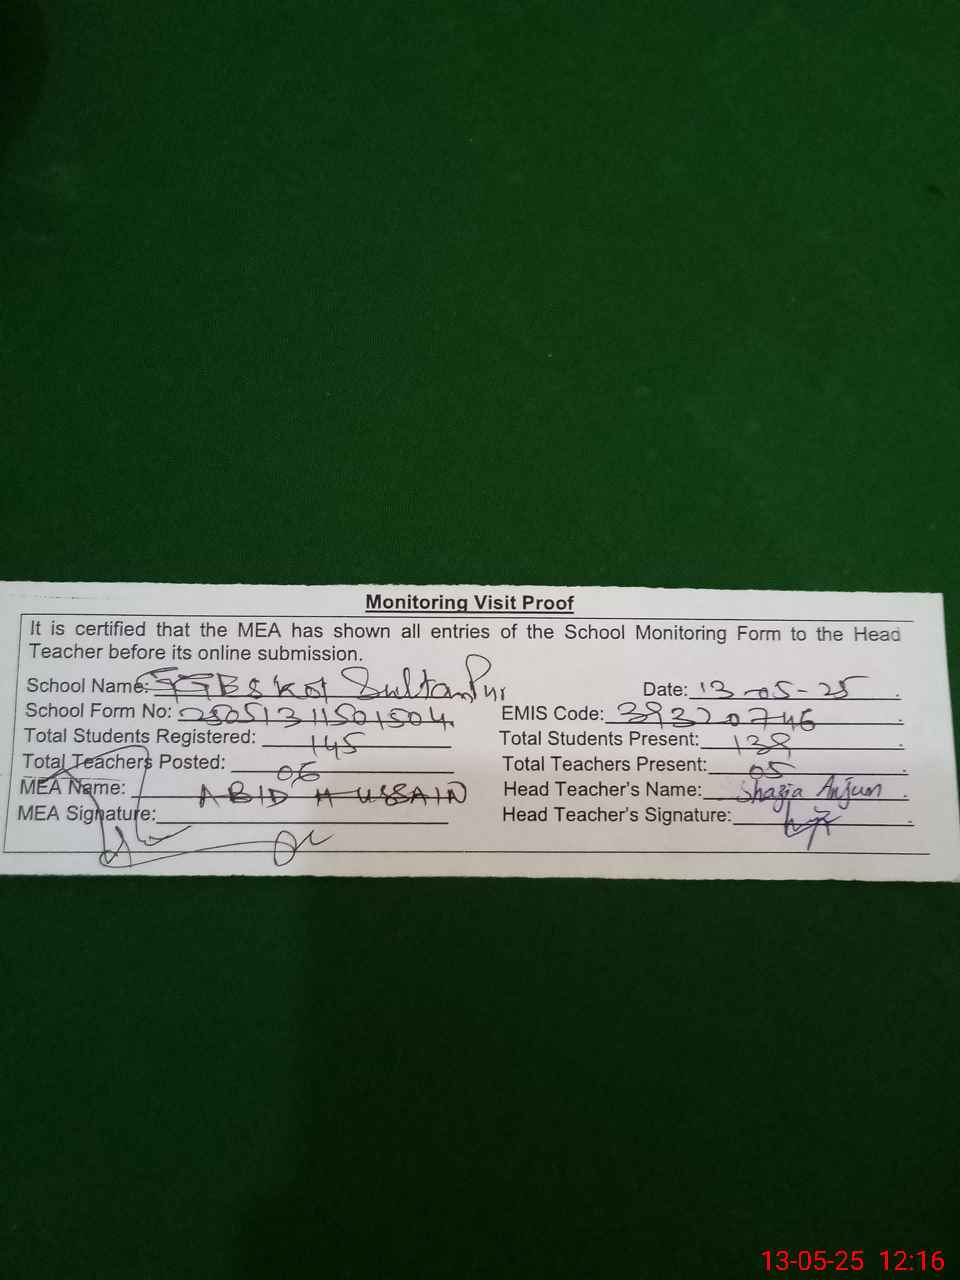 Monitoring Visit Proof
It is certified that the MEA has shown all entries of the School Monitoring Form to the Head
Teacher before its online submission.
School Name: Kot Sultan Pur Date: 13-05-25
School Form No: EMIS Code: 39320746
Total Students Registered: 145 Total Students Present: 138
Total Teachers Posted: 06 Total Teachers Present: 05
MEA Name: ABID HUSSAIN Head Teacher's Name: Shazia Anjum
MEA Signature: Head Teacher's Signature:
13-05-25 12:16